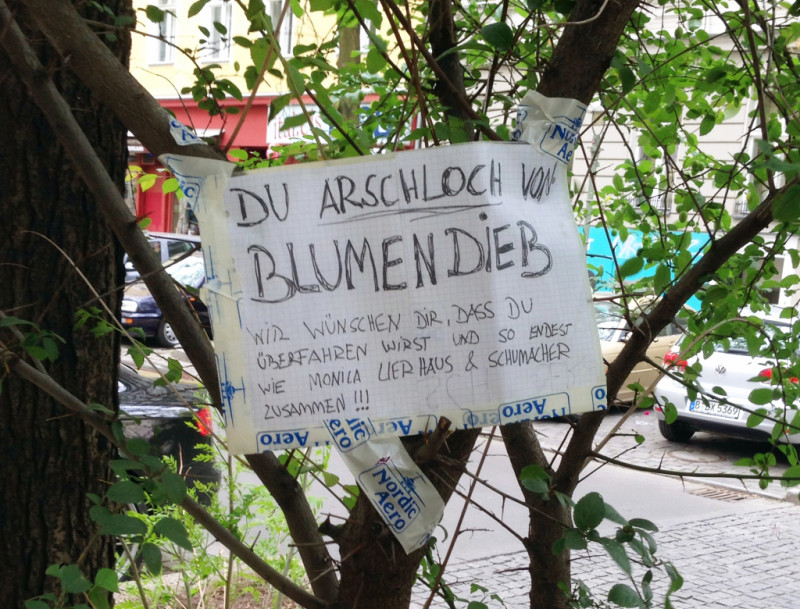 DU ARSCHLOCH VON
BLUMENDIEB
WIR WÜNSCHEN DIR, DASS DU
ÜBERFAHREN WIRST UND SO ENDEST
WIE MONICA LIERHAUS & SCHUMACHER
ZUSAMMEN !!!
Nordic
Aero
Aero
Aero
Nordic
Aero